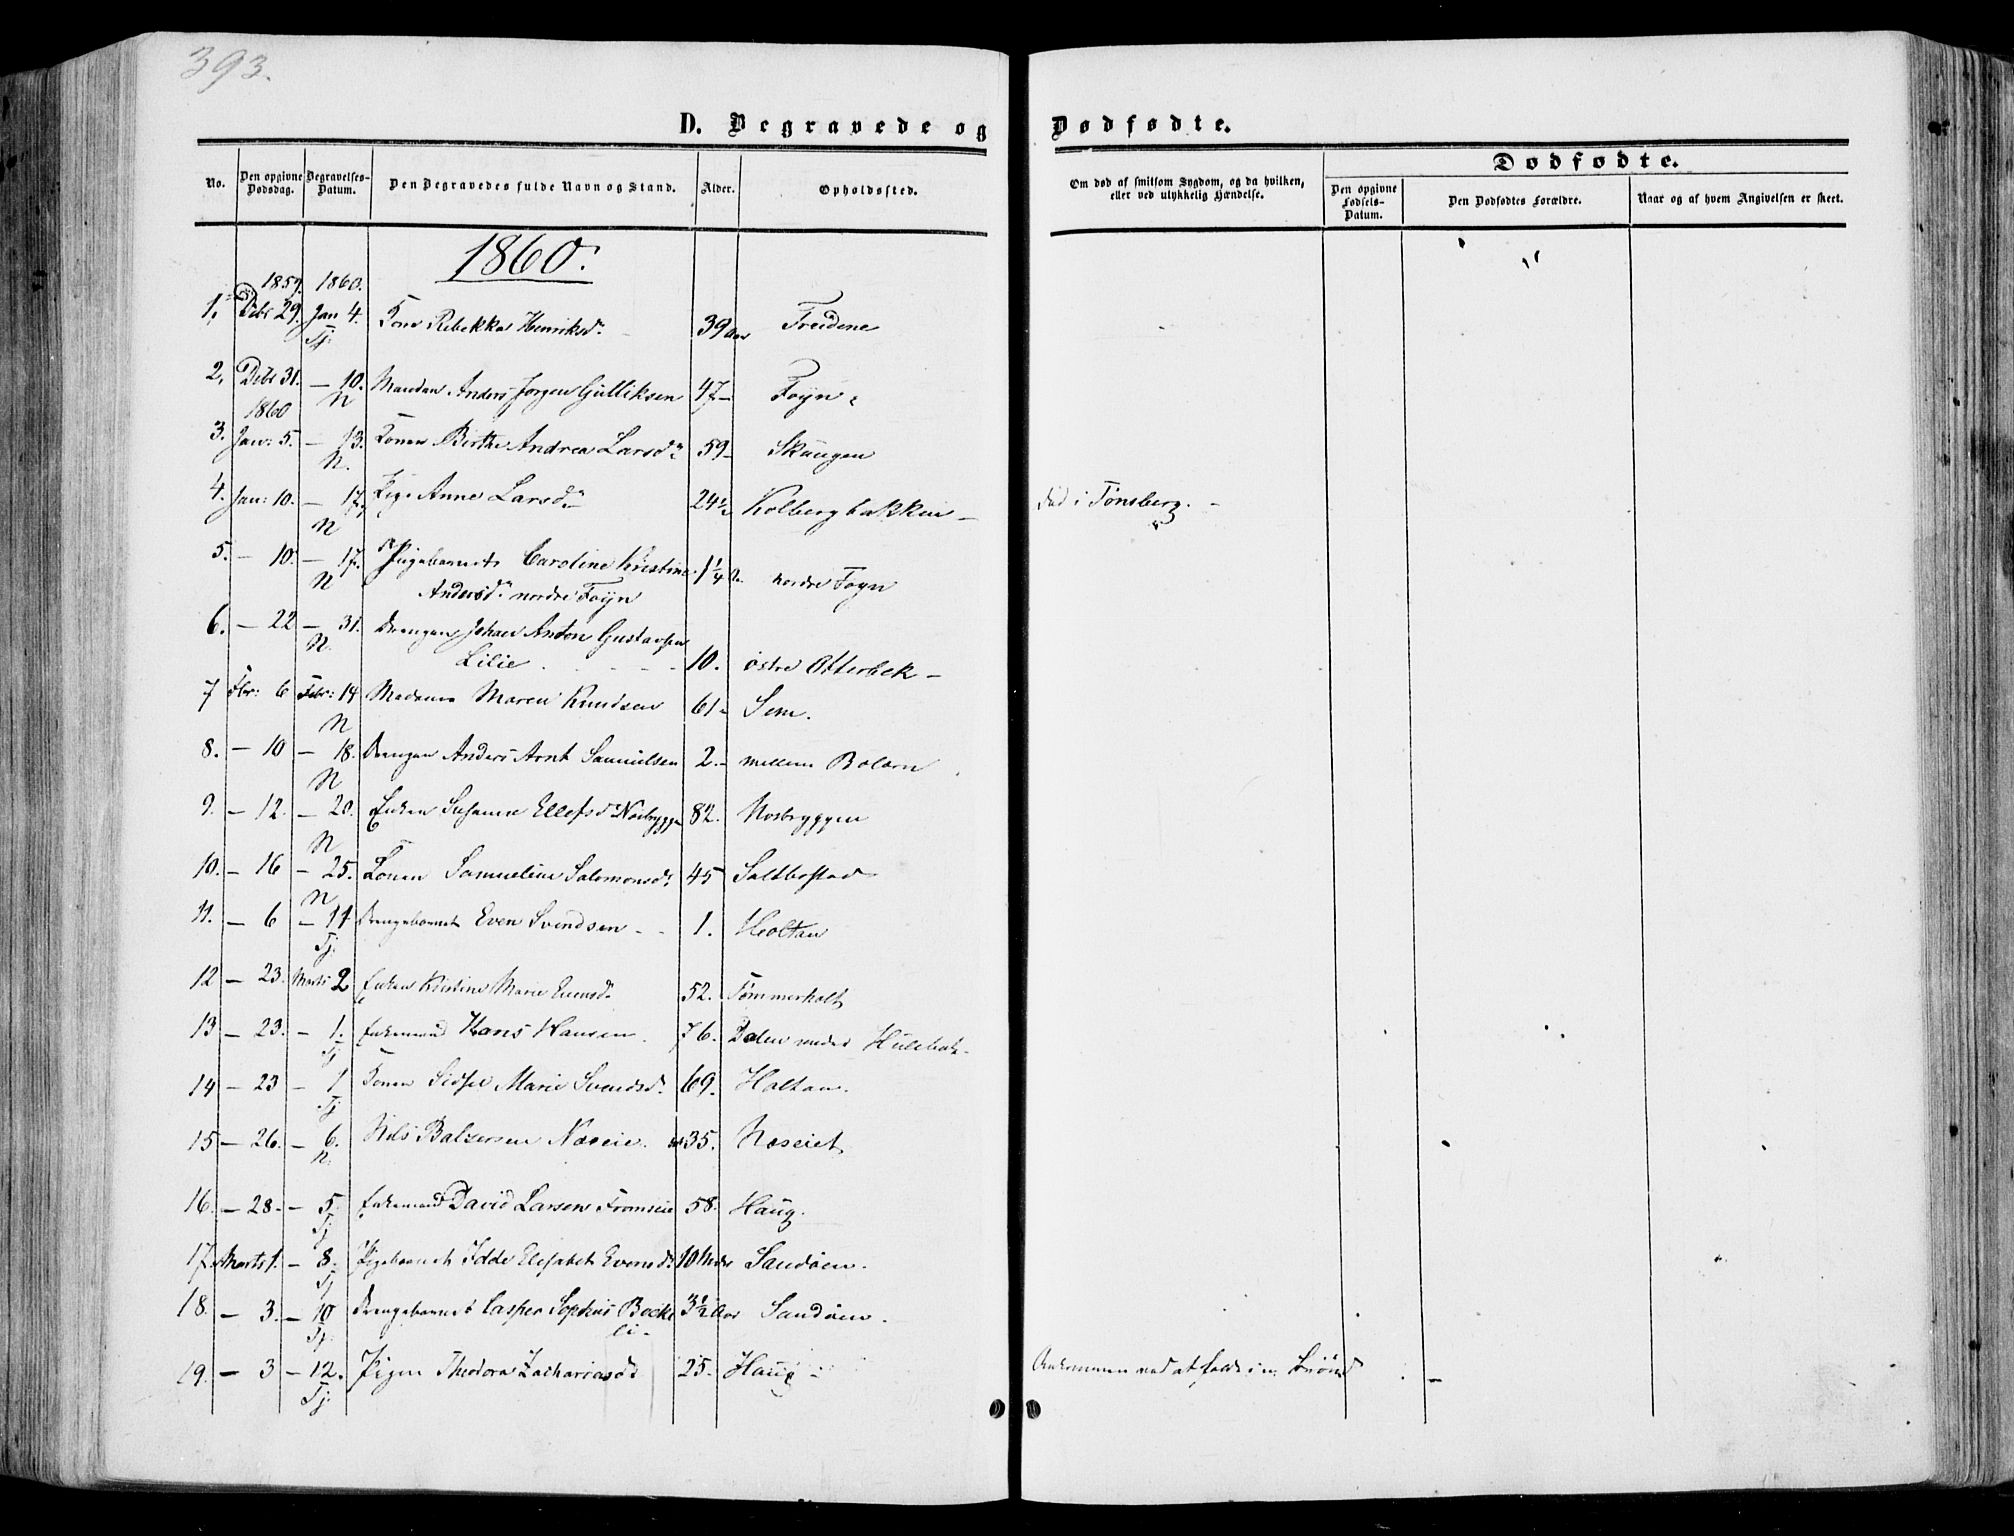 393.
D. Begravede og Dødfødte.
No. Den opgivne Dødsdag. Begravelses-Datum. Den Begravedes fulde Navn og Stand. Alder. Opholdssted. Om død af smitsom Sygdom, og da hvilken, eller ved ulykkelig Hændelse.
Dødfødte.
Den opgivne Fødsels-Datum. Den Dødfødtes Forældre. Naar og af hvem Angivelsen er skeet.
1860.
1859. 1860.
1, Debr 29. Jan 4. Kone Rebekka Henriksdr. 39 Aar Treidene
Tj:
2, Debr 31. — 10. Manden Anders Jørgen Gulliksen 47 – Føyn
1860 N
3. Jan: 5. — 13. Konen Birthe Andrea Larsdr 59 – Skaugen
N.
4. Jan: 10. — 17. Pige Anne Larsdr 24½ Kolbergbakken – død i Tønsberg. –
N
5. — 10. — 17. Pigebarnet Caroline Kristine 1¼ A. nordre Føyn
N Andersdr nordre Føyn
6. — 22 — 31. Drengen Johan Anton Gustavsen
N. Lilie 10. østre Otterbek –
7 Fbr: 6 Febr: 14 Madame Maren Knudsen 61 – Sem.
N
8. — 10 — 18. Drengen Anders Arnt Samuelsen 2. – mellem Bolærn
N
9. — 12. — 20. Enken Susanne Ellefsdr Næsbryggen 82. Næsbryggen
N
10. — 16 — 25. Konen Samueline Salomonsdr 45 Saltbostad
N
11. — 6 — 14 Drengebarnet Even Svendsen – – 1. Holtan
Tj.
12 — 23. Marts 2 Enken Kirstine Marie Evensdr. 52. Tømmerholt
13 — 23. — 1. Enkemand Hans Hansen. 76. Dalen under Hulebak.
Tj
14 — 23 — 1 Konen Sidsel Marie Svendsdr. 69. Holtan.
Tj
15 — 26. — 6. Nils Balzersen Næseie. 35. Næseiet
N.
16. — 28 – — 5. Enkemand David Larsen Framnæs 58. Haug.
Tj
17. Marts 1. — 8. Pigebarnet Idde Elisabet Evensdr 10 Mdr Sandøen.
Tj
18. — 3. — 10 Drengebarnet Casper Sophus Bøckeli – 3½ Aar Sandøen.
Tj.
19. — 3 — 12. Pigen Theodora Zachariasd 25. Haug – Omkommen ved at falde i en Brønd
Tj.